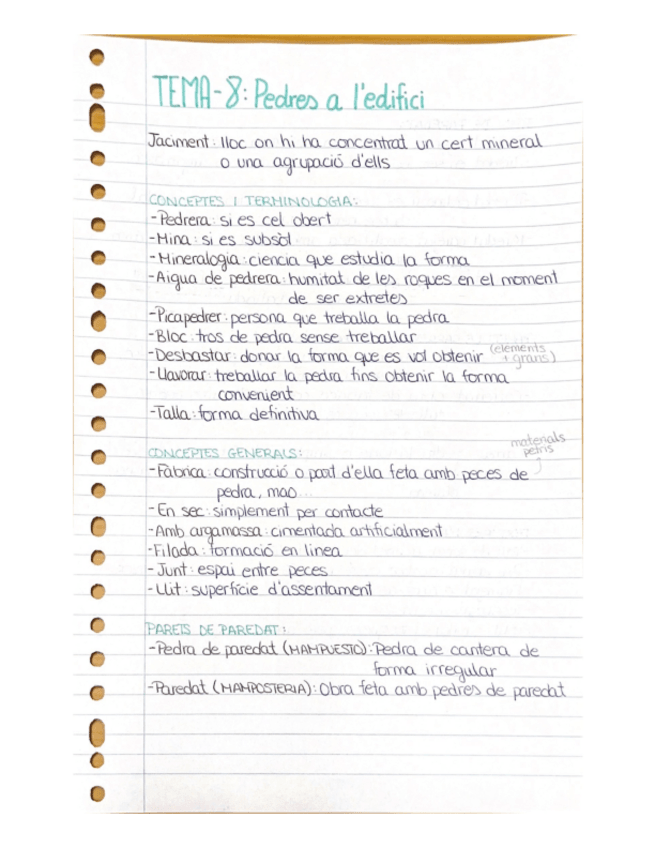 TEMA-8: Pedres a l'edifici
Jaciment: lloc on hi ha concentrat un cert mineral
o una agrupació d'ells
CONCEPTES I TERMINOLOGIA:
-Pedrera: si es cel obert
-Mina: si es subsòl
-Mineralogia: ciencia que estudia la forma
-Aigua de pedrera: humitat de les roques en el moment
de ser extretes
-Picapedrer: persona que treballa la pedra
-Bloc: tros de pedra sense treballar
-Desbastar: donar la forma que es vol obtenir (elements
+ grans)
-Llavorar: treballar la pedra fins obtenir la forma
convenient
-Talla: forma definitiva
materials
petris
CONCEPTES GENERALS:
-Fàbrica: construcció o part d'ella feta amb peces de
pedra, mao...
-En sec: simplement per contacte
-Amb argamassa: cimentada artificialment
-Filada: formació en linea
-Junt: espai entre peces
-Llit: superfície d'assentament
PARETS DE PAREDAT:
-Pedra de paredat (MAMPUESTO): Pedra de cantera de
forma irregular
-Paredat (MAMPOSTERIA): Obra feta amb pedres de paredat